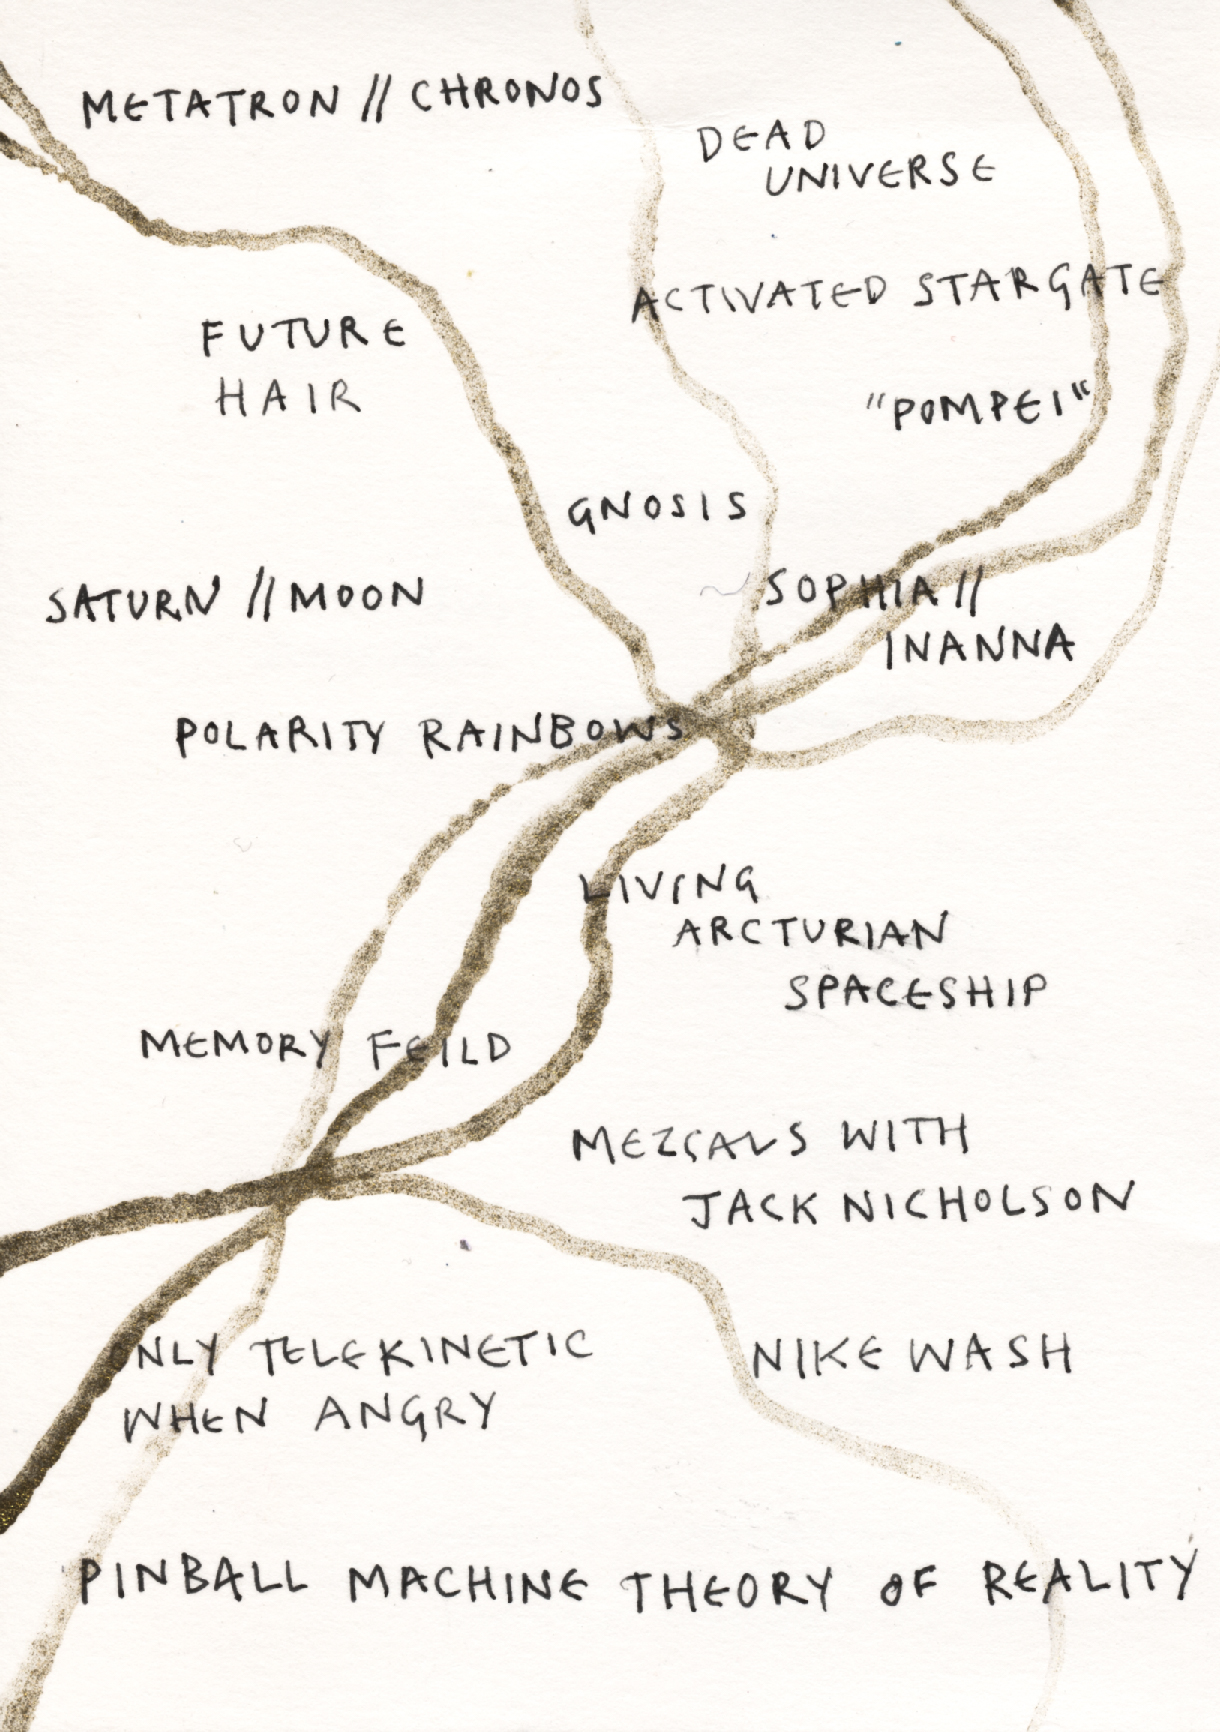 METATRON // CHRONOS
DEAD
UNIVERSE
ACTIVATED STARGATE
FUTURE
HAIR
"POMPEI"
GNOSIS
SATURN // MOON
SOPHIA //
INANNA
POLARITY RAINBOWS
LIVING
ARCTURIAN
SPACESHIP
MEMORY FEILD
MEZCALS WITH
JACK NICHOLSON
ONLY TELEKINETIC
WHEN ANGRY
NIKE WASH
PINBALL MACHINE THEORY OF REALITY